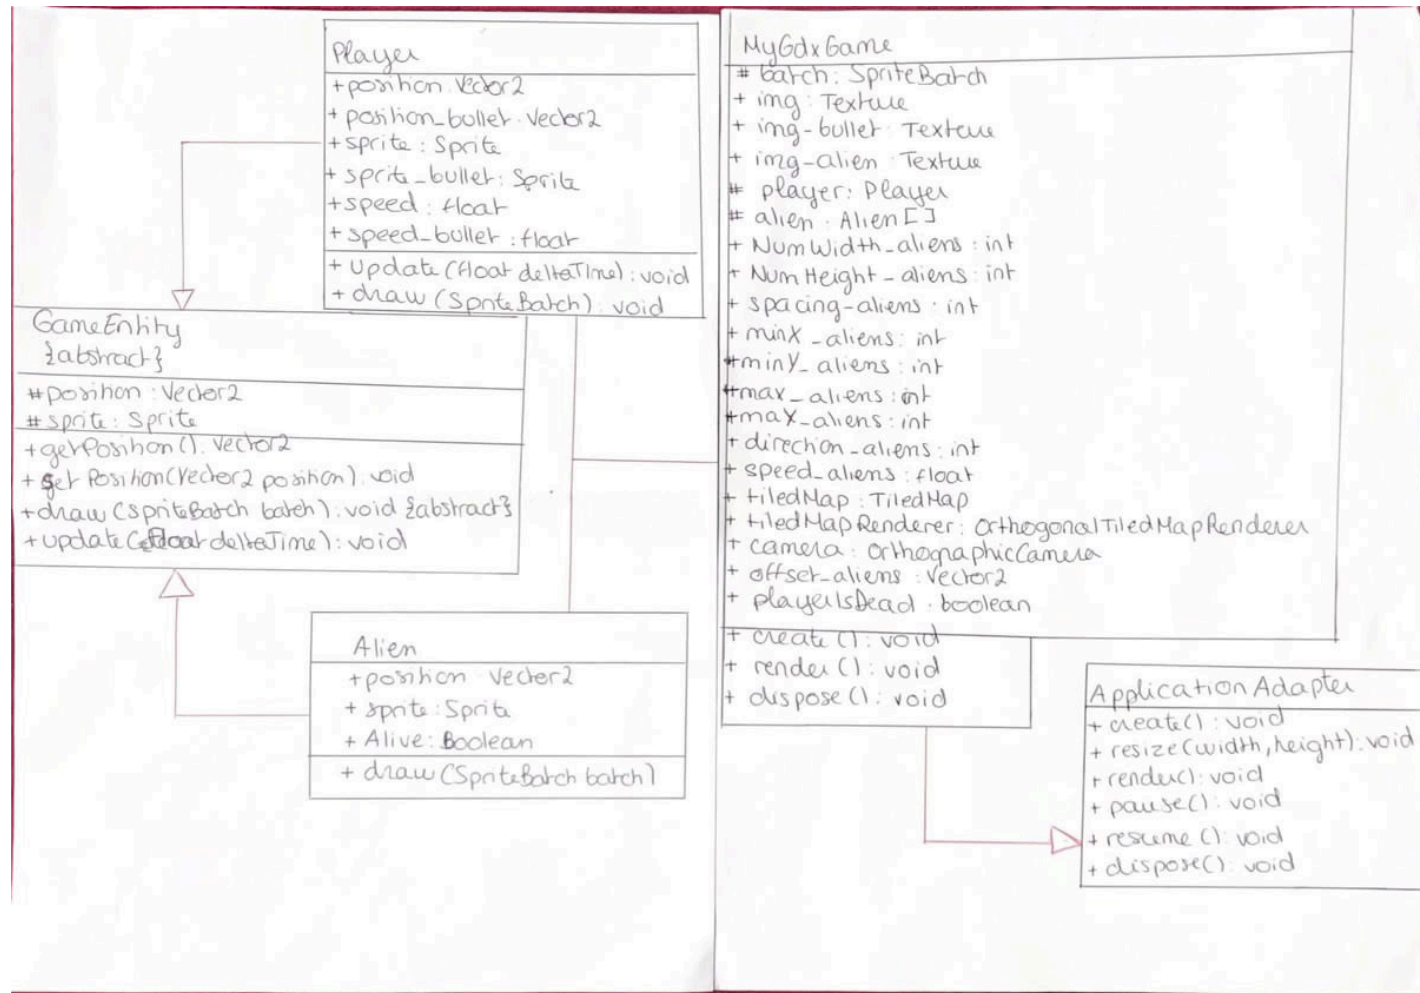 Player
+position: Vector2
+ position_bullet: Vector2
+sprite: Sprite
+ sprite_bullet: Sprite
+speed: float
+speed_bullet: float
+ Update(float deltaTIme): void
+ draw (SpriteBatch): void
GameEntity
{abstract}
#position: Vector2
# sprite: Sprite
+getPosition(): Vector2
+ set Position(Vector2 position): void
+draw (SpriteBatch batch): void {abstract}
+update(float deltaTime): void
Alien
+position Vector2
+ sprite: Sprite
+ Alive: Boolean
+ draw (SpriteBatch batch)
MyGdxGame
# batch: SpriteBatch
+ img: Texture
+ img-bullet: Texture
+ img-alien: Texture
# player: Player
# alien: Alien[]
+ NumWidth_aliens: int
+ NumHeight_aliens: int
+ spacing-aliens: int
+ minX_aliens: int
+minY_aliens: int
+max_aliens: int
+maX_aliens: int
+ direction_aliens: int
+ speed_aliens: float
+ tiledMap: TiledMap
+ tiledMapRenderer: OrthogonalTiledMapRenderer
+ camera: OrthographicCamera
+ offset_aliens: Vector2
+ playerIsDead: boolean
+ create(): void
+ render(): void
+ dispose(): void
ApplicationAdapter
+ create(): void
+ resize(width, height): void
+ render(): void
+ pause(): void
+ resume(): void
+ dispose(): void